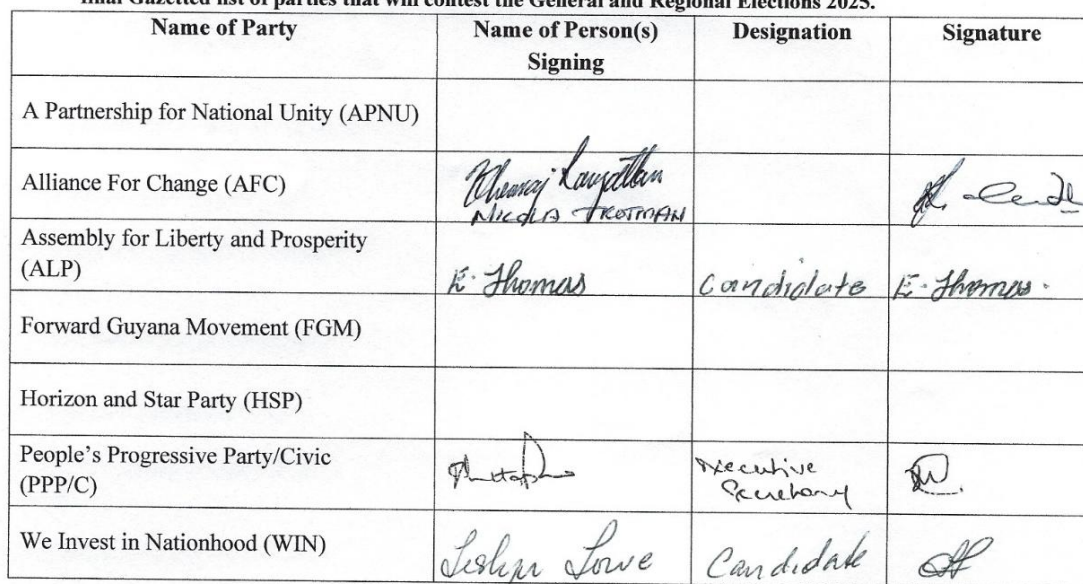 final Gazetted list of parties that will contest the General and Regional Elections 2025.
Name of Party Name of Person(s) Signing Designation Signature
A Partnership for National Unity (APNU)
Alliance For Change (AFC) Khemraj Ramjattan
TROTMAN
Assembly for Liberty and Prosperity
(ALP) E. Thomas Candidate E. Thomas.
Forward Guyana Movement (FGM)
Horizon and Star Party (HSP)
People's Progressive Party/Civic Executive
(PPP/C) Secretary
We Invest in Nationhood (WIN) Lowe Candidate